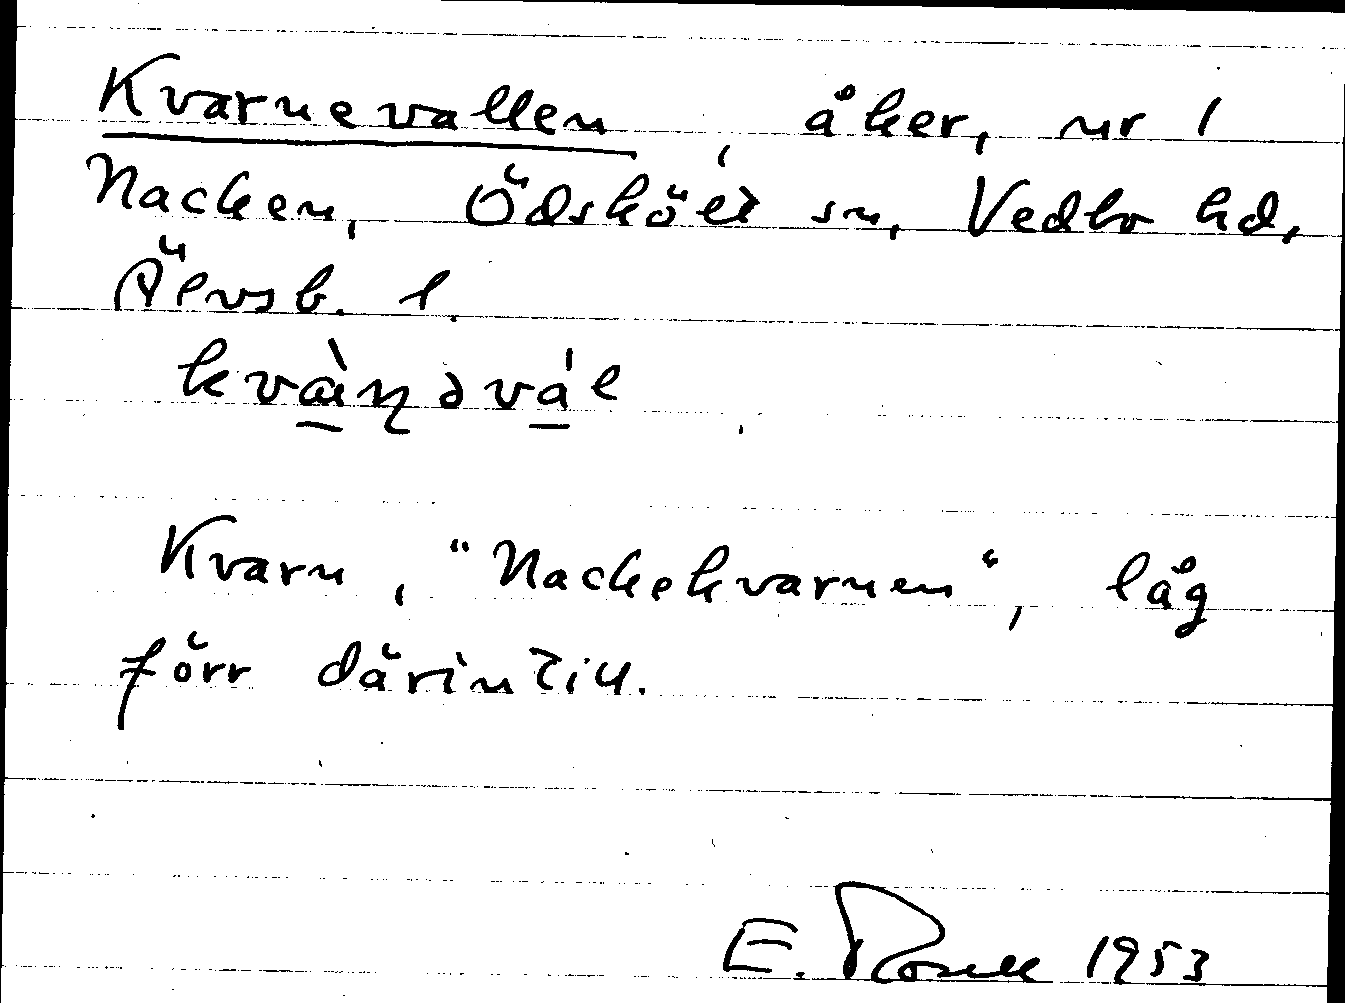 Kvarnevallen, åker, nr 1
Nacken, Ödskölt sn, Vedbo hd,
Älvsb. l.
kvæ̀ṇəvál
Kvarn, "Nackekvarnen", låg
förr därintill.
E. Rosell 1953